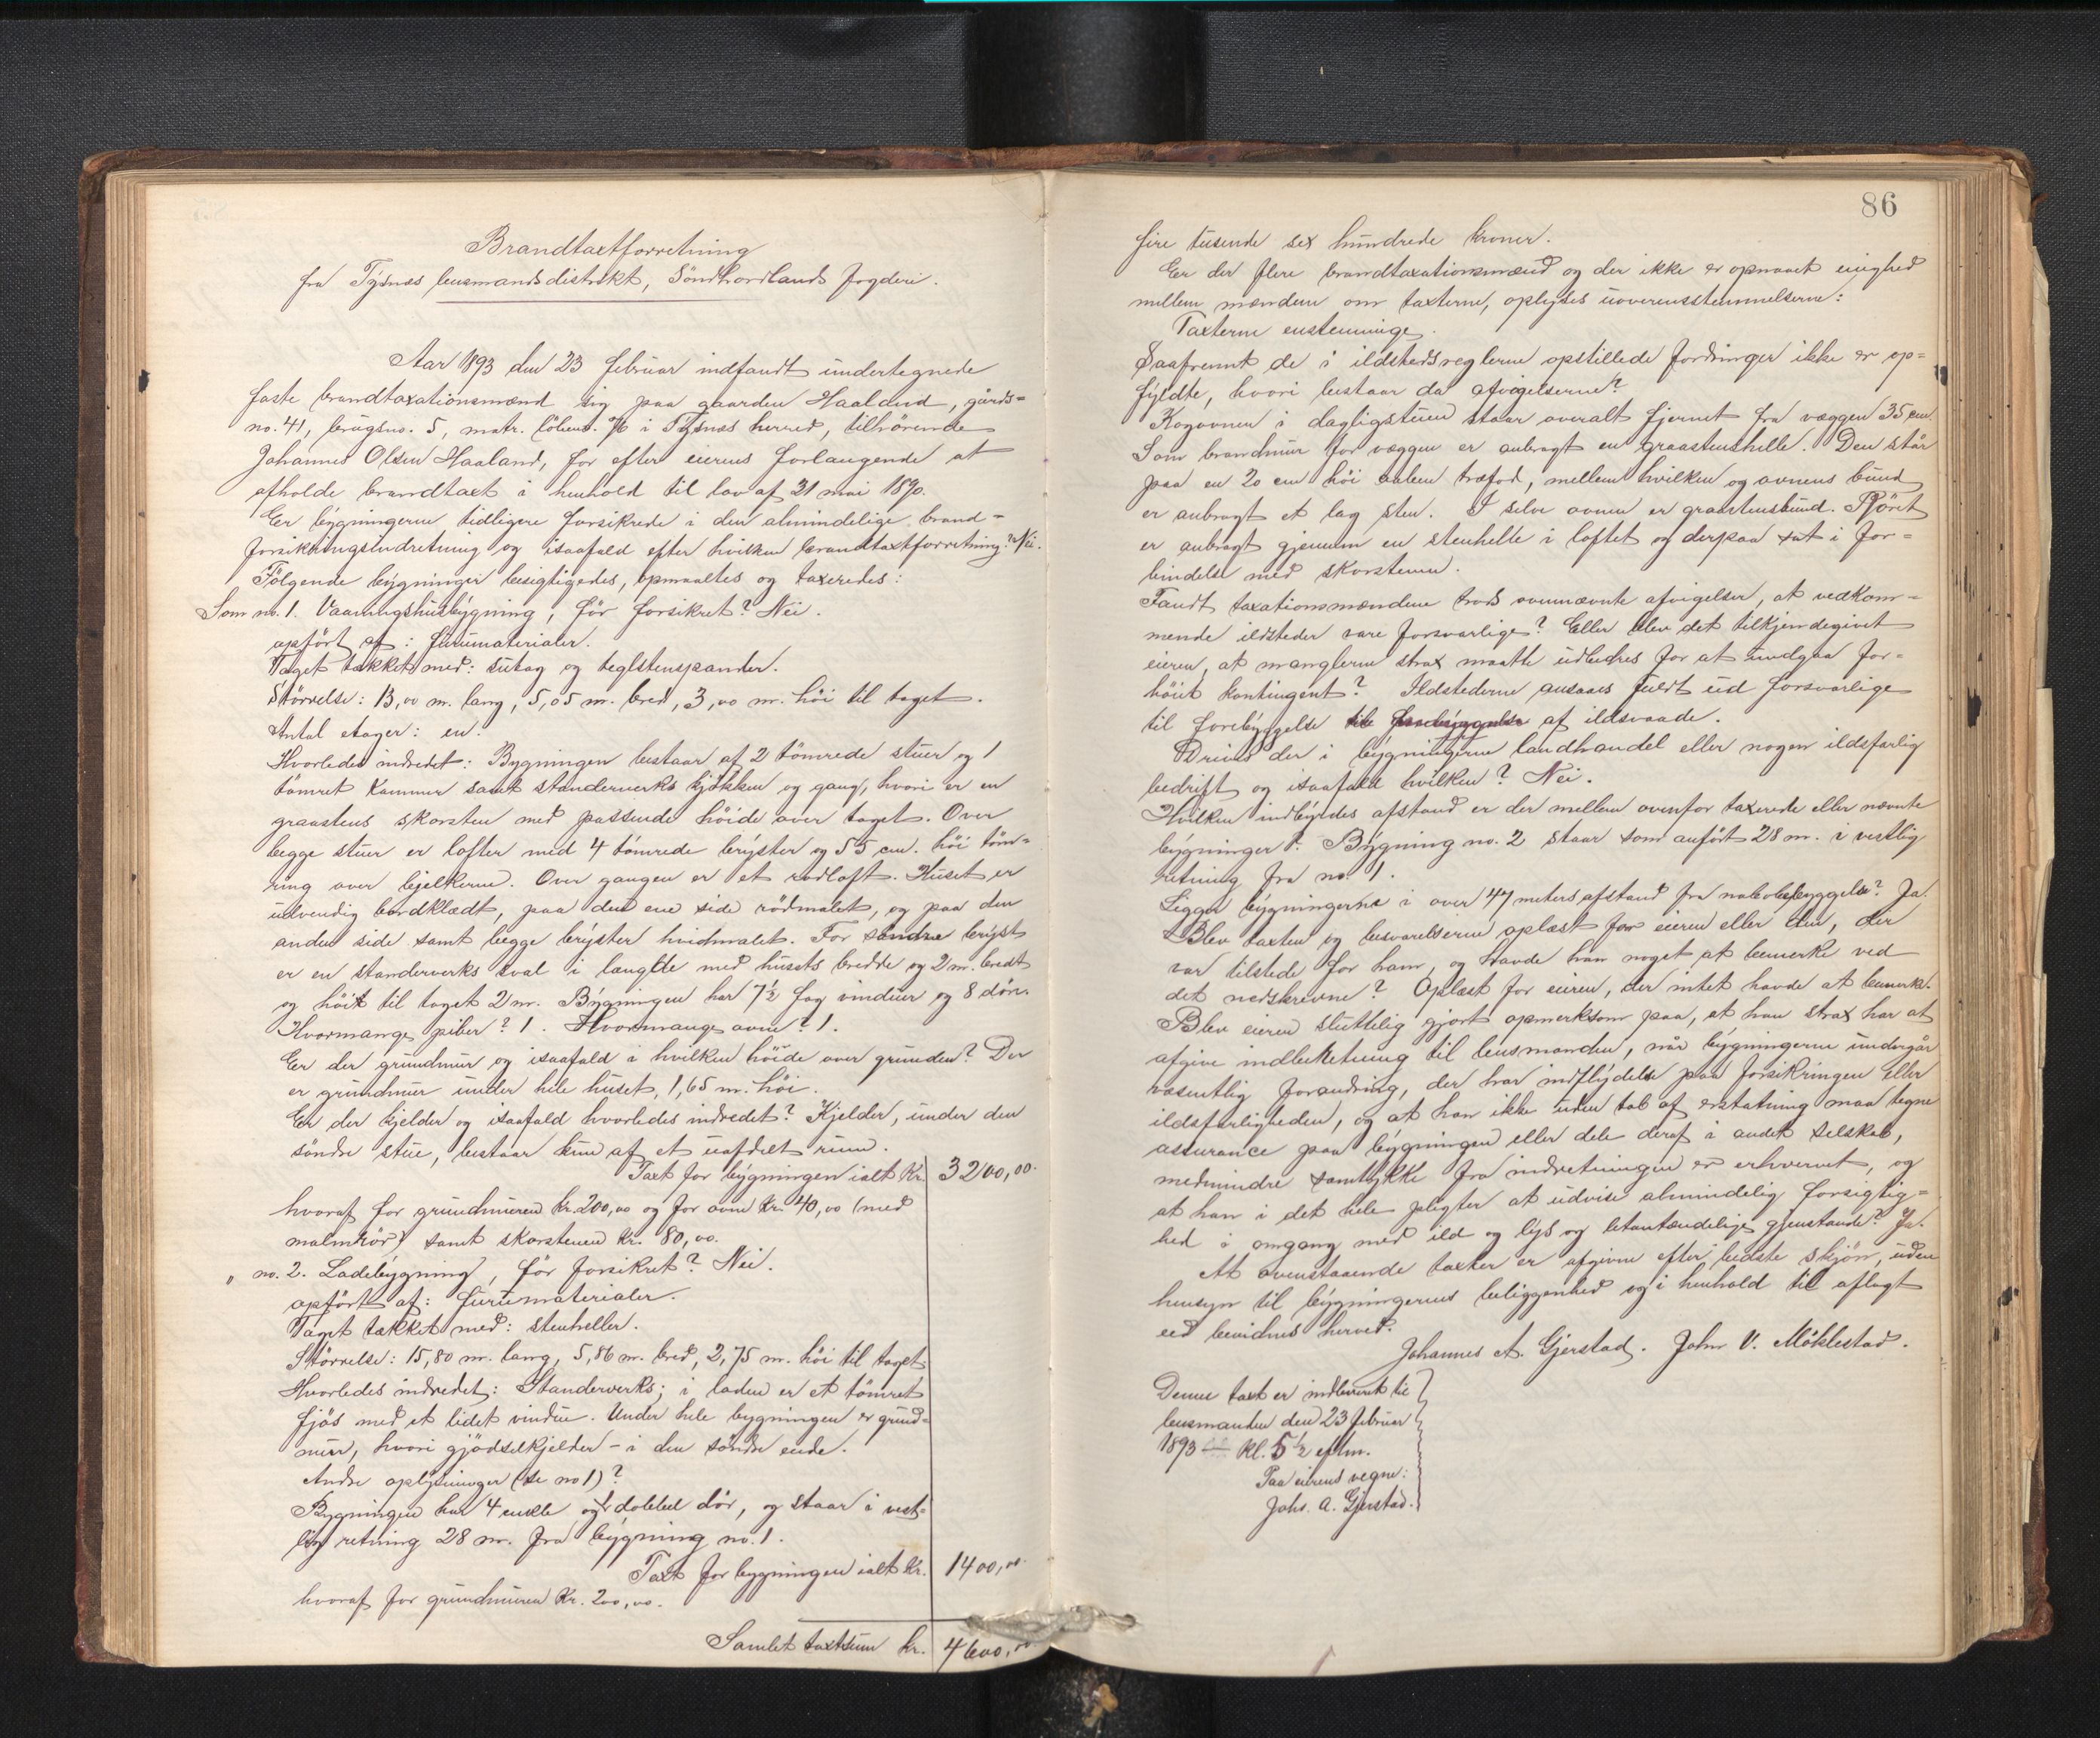 Brandtaxtforretning
fra Tysnæs lensmandsdistrikt, Söndhordlands fogderi.
Aar 1893 den 23 februar indfandt undertegnede
faste brandtaxationsmænd sig paa gaarden Haaland, gårds-
no. 41, brugsno. 5, matr. löbeno. i Tysnæs herred, tilhörende
Johannes Olsen Haaland, for efter eierens forlangende at
afholde brandtaxt i henhold til lov af 31 mai 1890.
Er bygningerne tidligere forsikrede i den almindelige brand-
forsikringsindretning og isaafald efter hvilken brandtaxtforretning? Nei.
Fölgende bygninger besigtigedes, opmaaltes og taxeredes:
Som no. 1. Vaaningshusbygning, för forsikret? Nei.
opfört af: furumaterialer.
Taget tækket med: sutag og teglstenspander.
Störrelse: 13,00 m. lang, 5,05 m. bred, 3,00 m. höi til taget.
Antal etager: en.
Hvorledes indredet: Bygningen bestaar af 2 tömrede stuer og 1
tömret kammer samt standerverks kjökken og gang, hvori er en
graastens skorsten med passende höide over taget. Over
begge stuer er lofter med 4 tömrede bryster og 55 cm. höi töm-
ring over bjelkerne. Over gangen er et rodloft. Huset er
udvendig bordklædt, paa den ene side rödmalet, og paa den
anden side samt begge bryster hvidmalet. For söndre bryst
er en standerverks sval i længde med husets bredde og 2 m. bredt
og höit til taget 2 m. Bygningen har 7½ fag vinduer og 8 döre.
Hvormange piber? 1. Hvormange ovne? 1.
Er der grundmur og isaafald i hvilken höide over grunden? Der
er grundmur under hele huset, 1,65 m. höi.
Er der kjelder og isaafald hvorledes indredet? Kjelder, under den
söndre stue, bestaar kun af et uafdelt rum.
Taxt for bygningen ialt Kr. 3200,00.
hvoraf for grundmuren kr. 200,00 og for ovne Kr. 40,00 (med
malmrör) samt skorstenen Kr. 80,00.
" no. 2. Ladebygning, för forsikret? Nei.
opfört af: furumaterialer.
Taget tækket med: stenheller.
Störrelse: 15,80 m. lang, 5,86 m. bred, 2,75 m. höi til taget.
Hvorledes indredet: Standerverks; i laden er et tömret
fjös med et lidet vindue. Under hele bygningen er grund-
mur, hvori gjödselkjelder - i den söndre ende.
Andre oplysninger (se no 1)?
Bygningen har 4 enkle og 1 dobbel dör, og staar i vest-
lig retning 28 m. fra bygning no. 1.
Taxt for bygningen ialt Kr. 1400,00.
hvoraf for grundmuren Kr. 200,00.
Samlet taxtsum kr. 4600,00
86
fire tusende sex hundrede kroner.
Er der flere brandtaxationsmænd og der ikke er opnaaet enighed
mellem mændene om taxterne, oplyses uoverensstemmelserne:
Taxterne enstemmige.
Saafremt de i ildstedsreglerne opstillede fordringer ikke er op-
fyldte, hvori bestaar da afvigelserne?
Kogovnen i dagligstuen staar overalt fjernet fra væggen 35 cm
Som brandmur for væggen er anbragt en graastenshelle. Den står
paa en 20 cm höi aaben træfod, mellem hvilken og ovnens bund
er anbragt et lag sten. I selve ovnen er graastensbund. Röret
er anbragt gjennem en stenhelle i loftet og derpaa sat i for-
bindelse med skorstenen.
Fandt taxationsmændene trods ovennævnte afvigelser, at vedkom-
mende ildsteder vare forsvarlige? Eller blev det tilkjendegivet
eieren, at manglerne strax maatte udbedres for at undgaa for-
höiet kontingent? Ildstederne ansaaes fuldt ud forsvarlige
til forebyggelse af ildsvaade.
Drives der i bygningerne landhandel eller nogen ildsfarlig
bedrift og isaafald hvilken? Nei.
Hvilken indbyrdes afstand er der mellem ovenfor taxerede eller nævnte
bygninger? Bygning no. 2 staar som anfört 28 m. i vestlig
retning fra no. 1.
Ligger bygningerne i over 47 meters afstand fra nabobebyggelse? Ja.
Blev taxten og besvarelserne oplæst for eieren eller den, der
var tilstede for ham, og havde han noget at bemerke ved
det nedskrevne? Oplæst for eieren, der intet havde at bemerke.
Blev eieren sluttelig gjort opmerksom paa, at han strax har at
afgive indberetning til lensmanden, når bygningerne undergår
væsentlig forandring, der har indflydelse paa forsikringen eller
ildsfarligheden, og at han ikke uden tab af erstatning maa tegne
assurance paa bygningen eller dele deraf i andet selskab,
medmindre samtykke fra indretningen er erhvervet, og
at han i det hele pligter at udvise almindelig forsigtig-
hed i omgang med ild og lys og letantændelige gjenstande? Ja.
At ovenstaaende taxter er afgivne efter bedste skjön, uden
hensyn til bygningernes beliggenhed og i henhold til aflagt
eed bevidnes herved.
Johannes A. Gjerstad. John V. Möklestad.
Denne taxt er indleveret til
lensmanden den 23 februar
1893 Kl. 5½ eftm.
Paa eierens vegne:
Johs. A. Gjerstad.